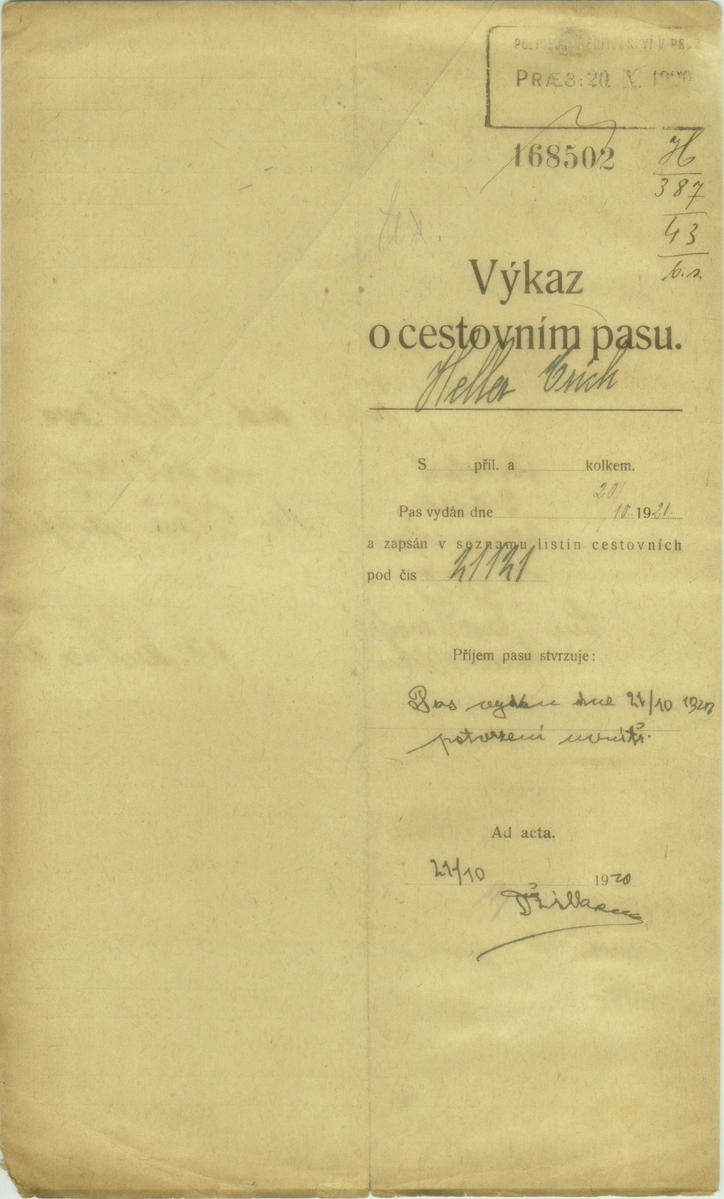 POLICEJNÍ ŘEDITELSTVÍ V PRAZE
PRÆS: 20. X. 1920
168502
H
387
43
b.s.
Výkaz
o cestovním pasu.
Heller Erich
S příl. a kolkem.
Pas vydán dne 20/10. 1920.
a zapsán v seznamu listin cestovních
pod čis 21121
Příjem pasu stvrzuje:
Pas vydán dne 21/10 1920
potvrzení uvnitř.
Ad acta.
21/10 1920